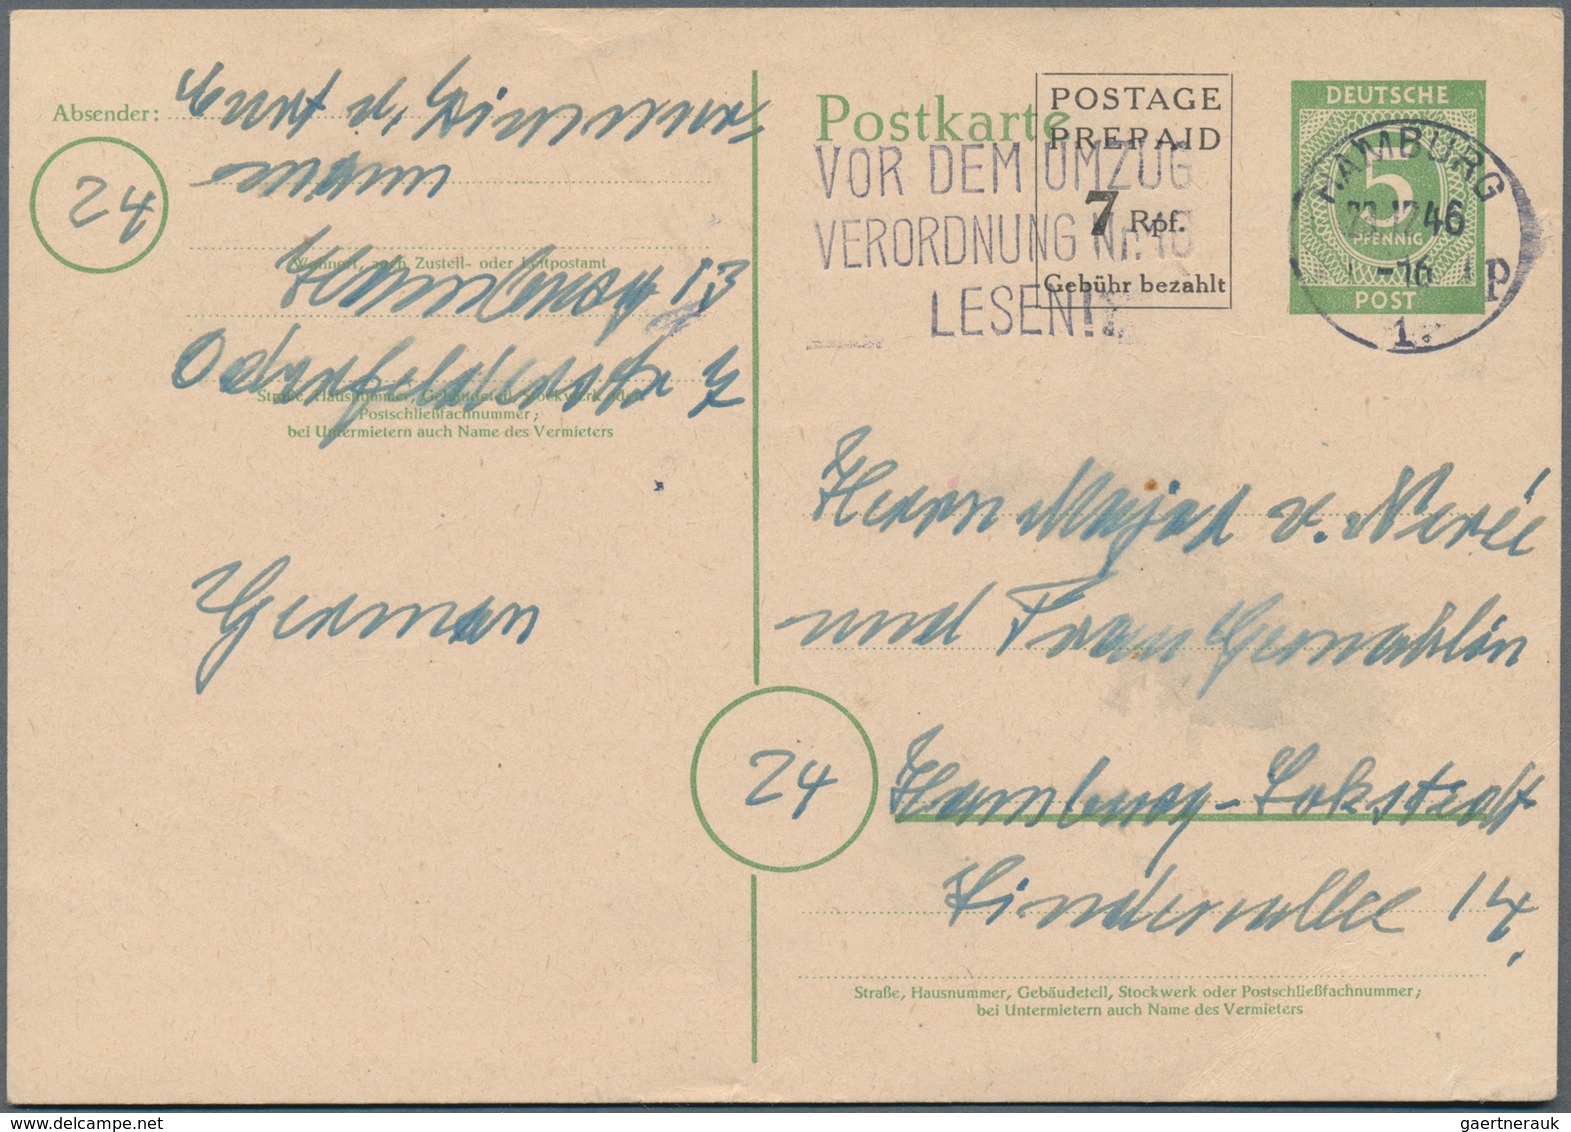 Absender:
mann
24
Wohnort, auch Zustell- oder Leitpostamt
Hamburg 13
Straße, Hausnummer, Gebäudeteil, Stockwerk oder
Postschließfachnummer;
bei Untermietern auch Name des Vermieters
German
Postkarte
POSTAGE
PREPAID
7 Rpf.
Gebühr bezahlt
VOR DEM UMZUG
VERORDNUNG Nr. 16
LESEN!
DEUTSCHE
5
PFENNIG
POST
HAMBURG
12 46
-16
1
p
Herrn Major v. Nerée
und Frau Gemahlin
24
Hamburg-Lokstedt
Lindenallee 14.
Straße, Hausnummer, Gebäudeteil, Stockwerk oder Postschließfachnummer;
bei Untermietern auch Name des Vermieters
gaertnerauk@delcampe.net